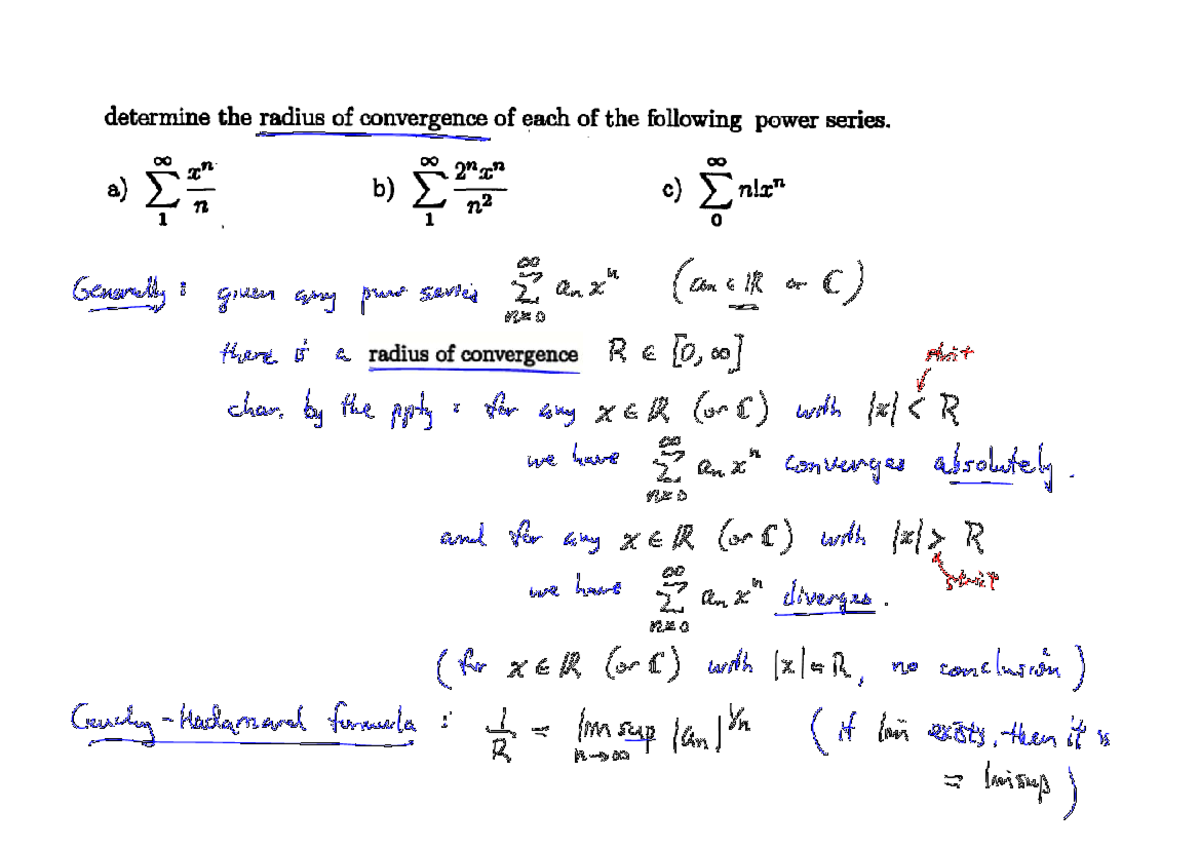 determine the radius of convergence of each of the following power series.
a) ∑_{1}^{∞} x^n/n b) ∑_{1}^{∞} 2^n x^n/n^2 c) ∑_{0}^{∞} n!x^n
Generally : given any power series ∑_{n=0}^{∞} a_n x^n (a_n ∈ ℝ or ℂ)
there is a radius of convergence R ∈ [0, ∞]
strict
char. by the ppty : for any x ∈ ℝ (or ℂ) with |x| < R
we have ∑_{n=0}^{∞} a_n x^n converges absolutely.
and for any x ∈ ℝ (or ℂ) with |x| > R
strict
we have ∑_{n=0}^{∞} a_n x^n diverges.
(for x ∈ ℝ (or ℂ) with |x| = R, no conclusion)
Cauchy-Hadamard formula : 1/R = lim sup_{n→∞} |a_n|^{1/n} (if lim exists, then it is
= limsup)